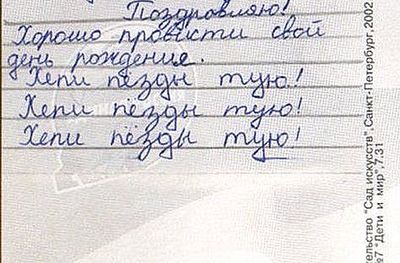 Поздровляю!
Хорошо провисти свой
день рождение.
Хепи пёзды тую!
Хепи пёзды тую!
Хепи пёзды тую!
тельство "Сад искусств", Санкт-Петербург, 2002
№7 "Дети и мир", 7.31